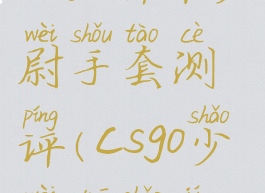 wèi shǒu tào cè
尉手套测
píng shǎo
评(CS90少